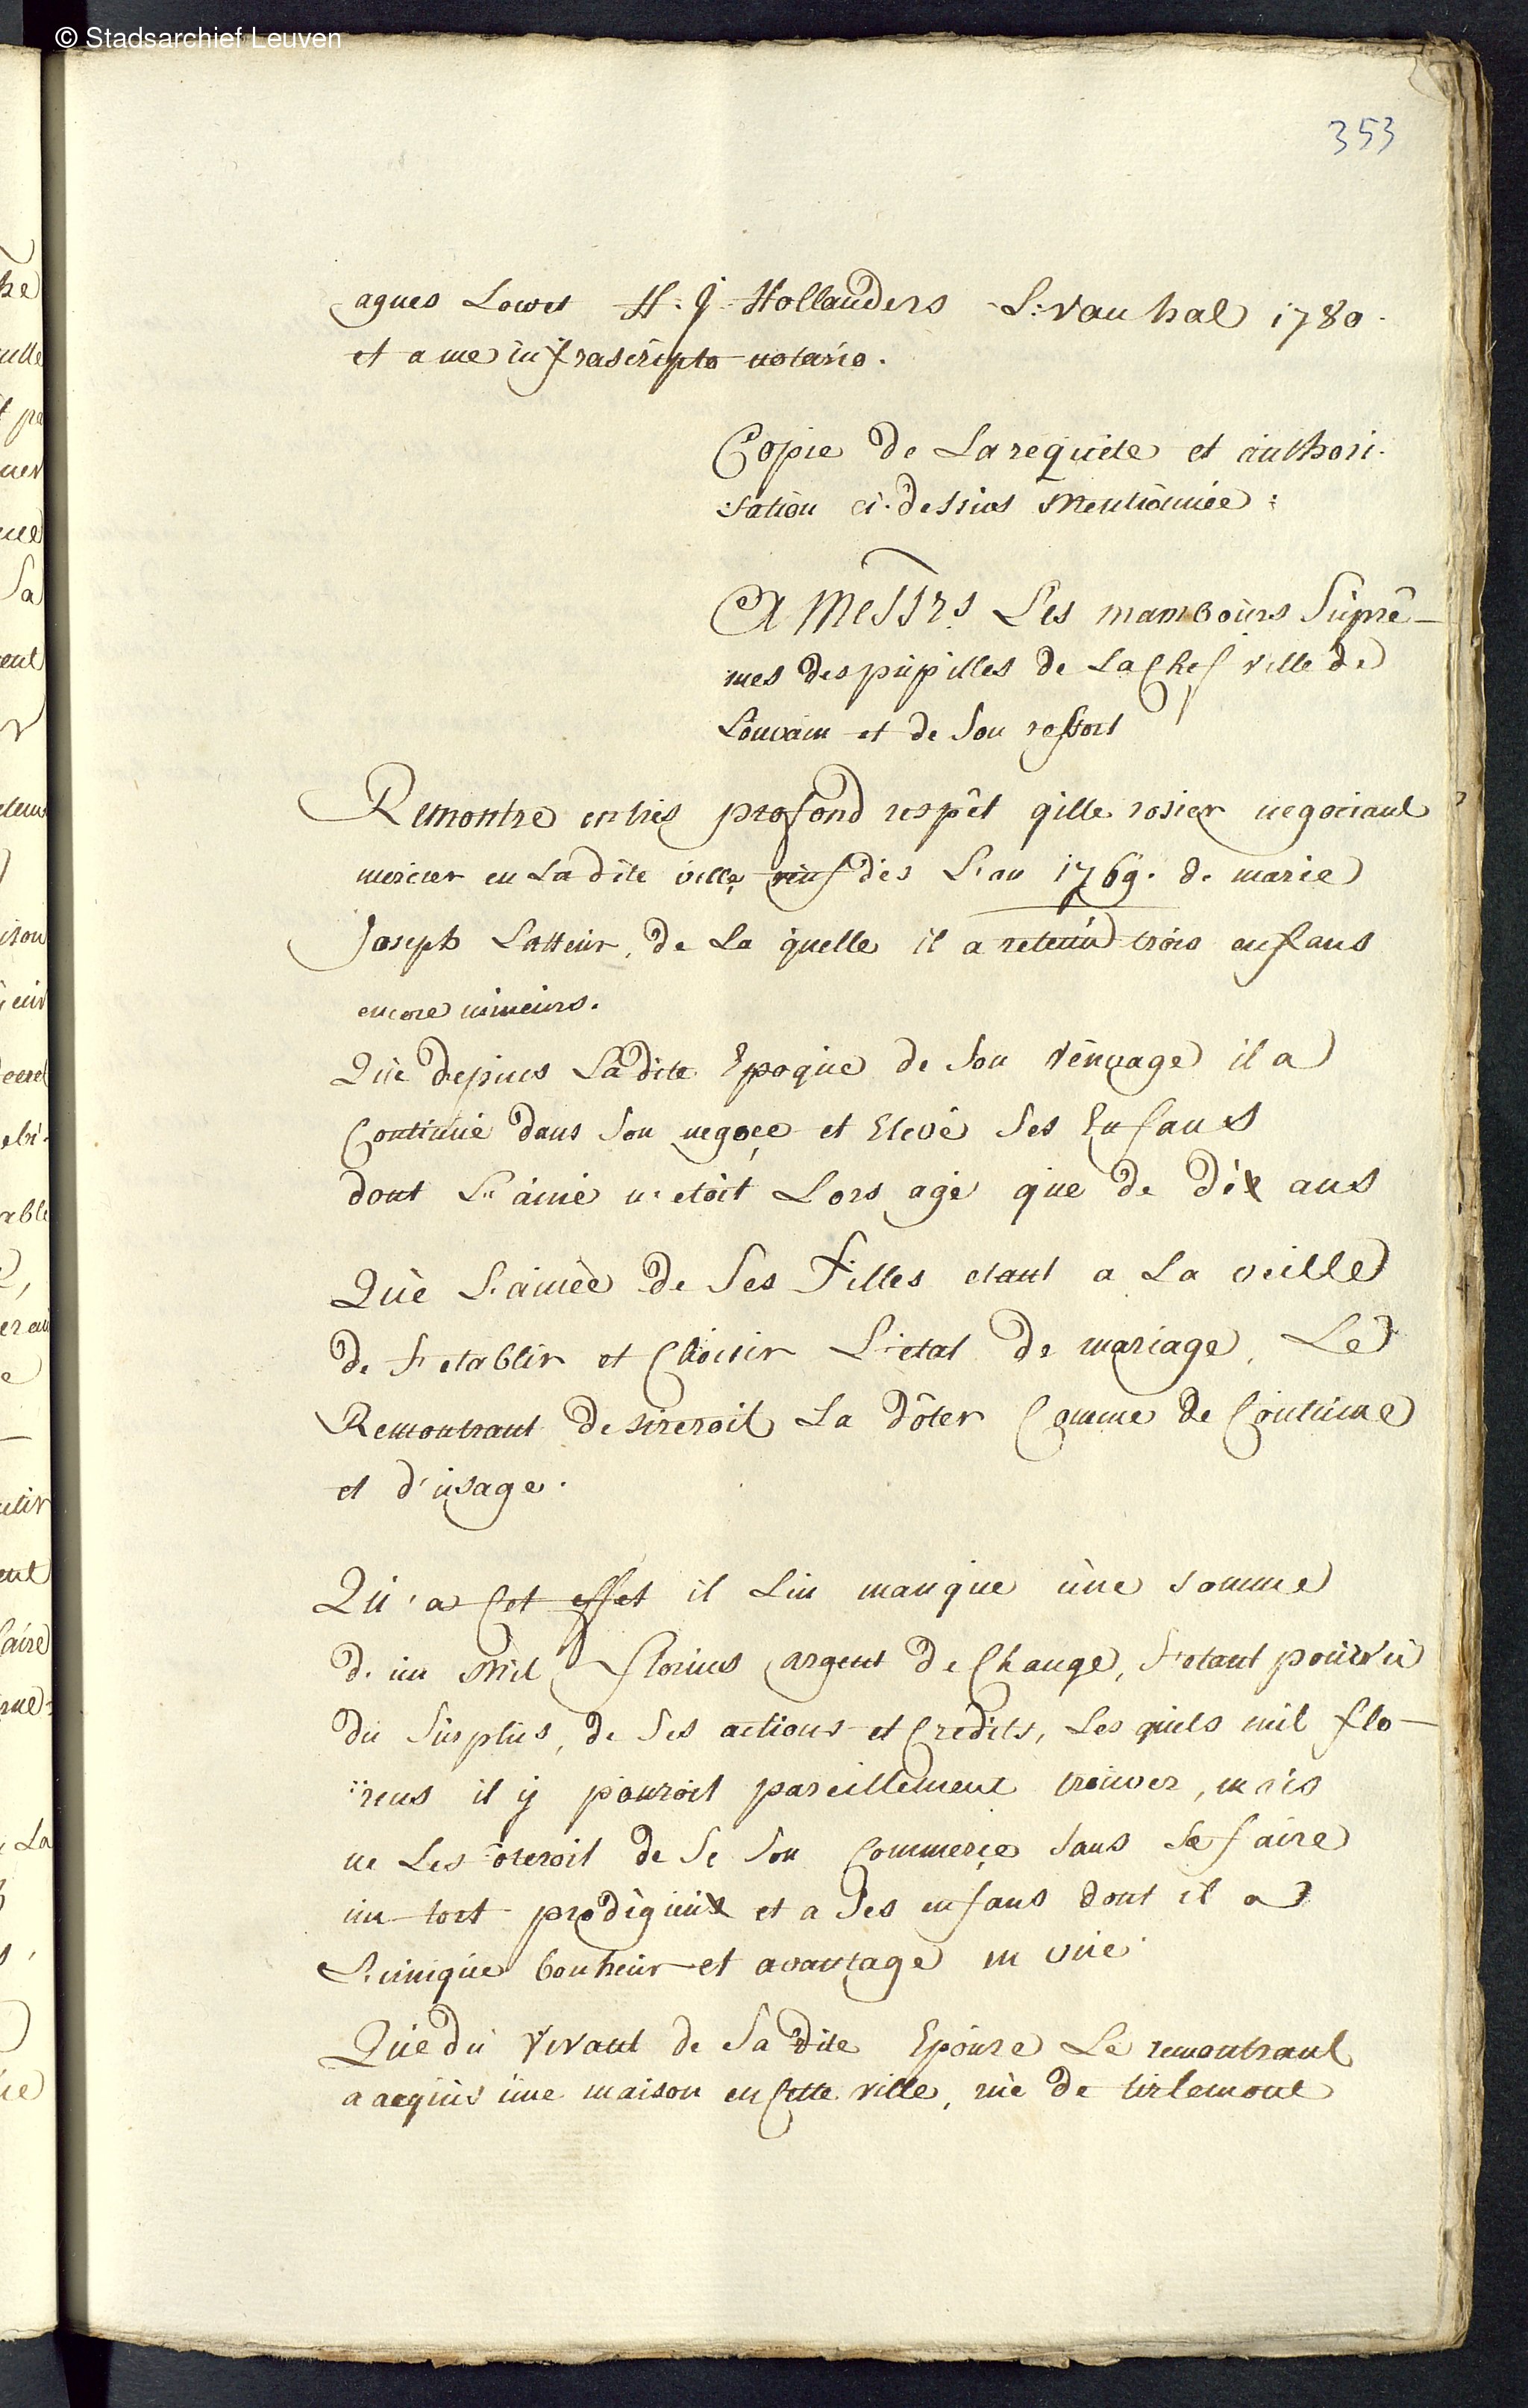 © Stadsarchief Leuven
353
agnes Lowet H: J Hollanders L: van hal 1780.
et a me infrascripto notario.
Copie de La requéte et authori-
sation ci-dessus Mentionnée:
A Messrs Les mambours Suprê-
mes des pupilles de La Chef ville de
Louvain et de Son ressort
Remontre en très profond respêt gille rosier negociant
mercier en La dite ville veuf dès L'an 1769. de marie
Joseph Latteur, de La quelle il a retenu trois enfans
encore mineurs.
Que depuis La dite Epoque de Son Veuvage il a
Continué dans Son negoce et Elevé Ses Enfans
dont L'ainé n'etoit Lors agé que de dix ans
Que L'ainée de Ses Filles etant a La veille
de S'etablir et Choisir L'etat de mariage, Le
Remontrant desireroit La dôter Comme de Coutume
et d'usage.
Qu'a Cet effet il Lui manque une somme
d'un Mil florins argent de Change, S'etant pourvû
du Surplus, de Ses actions et Credits, Les quels mil flo-
rens il ÿ pouroit pareillement trouver, mais
ne Les ôteroit de Se Son Commerce Sans Se faire
un tort prodigieux et a Ses enfans dont il a
L'unique bonheur et avantage en vuë
Que du Vivant de Sa dite Epouse Le remontrant
a acquis une maison en Cette ville, ruë de tirlemont